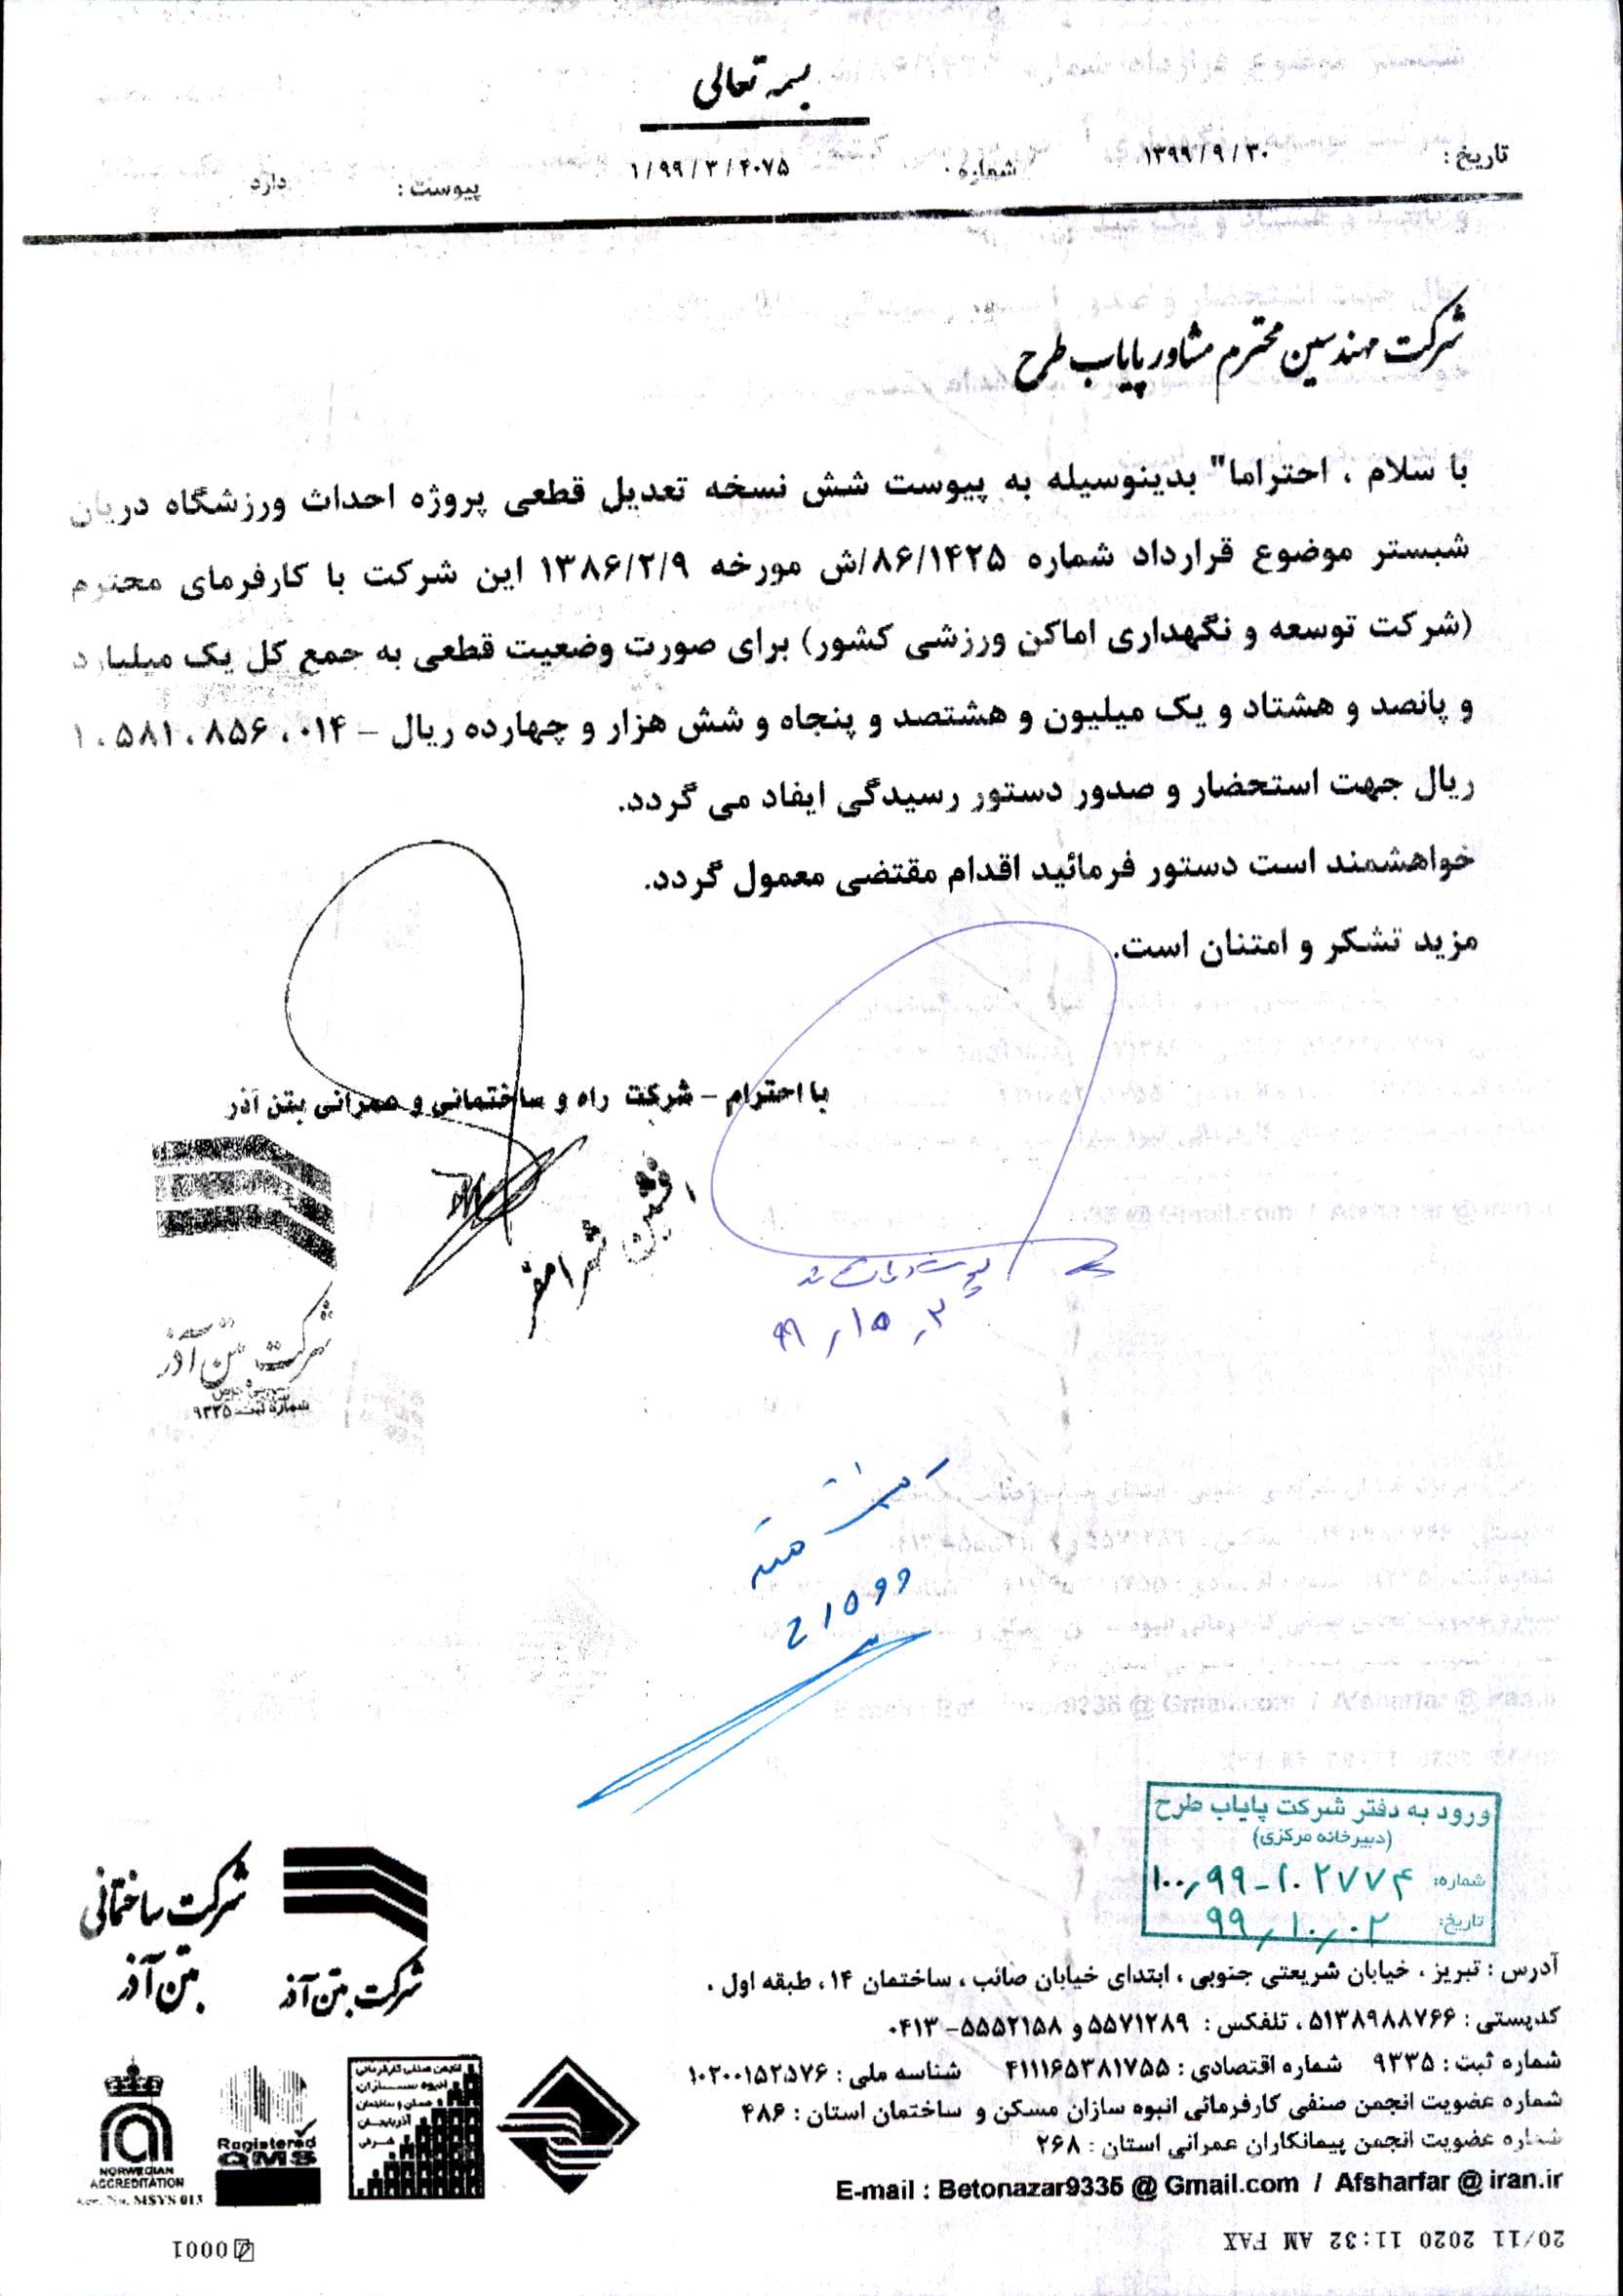 بسمه تعالی
تاریخ: ۱۳۹۹/۹/۳۰ شماره: ۱/۹۹/۳/۴۰۷۵ پیوست: دارد
شرکت مهندسین محترم مشاور پایاب طرح
با سلام ، احتراما" بدینوسیله به پیوست شش نسخه تعدیل قطعی پروژه احداث ورزشگاه دریان
شبستر موضوع قرارداد شماره ۸۶/۱۴۲۵/ش مورخه ۱۳۸۶/۲/۹ این شرکت با کارفرمای محترم
(شرکت توسعه و نگهداری اماکن ورزشی کشور) برای صورت وضعیت قطعی به جمع کل یک میلیارد
و پانصد و هشتاد و یک میلیون و هشتصد و پنجاه و شش هزار و چهارده ریال – ۱،۵۸۱،۸۵۶،۰۱۴
ریال جهت استحضار و صدور دستور رسیدگی ایفاد می گردد.
خواهشمند است دستور فرمائید اقدام مقتضی معمول گردد.
مزید تشکر و امتنان است.
با احترام – شرکت راه و ساختمانی و عمرانی بتن آذر
شرکت بتن آذر
شماره ثبت ۹۳۳۵
ورود به دفتر شرکت پایاب طرح
(دبیرخانه مرکزی)
شماره: ۱۰۰٫۹۹-۱۰۲۷۷۴
تاریخ: ۹۹٫۱۰٫۰۲
شرکت ساختمانی
بتن آذر
شرکت بتن آذر
آدرس : تبریز ، خیابان شریعتی جنوبی ، ابتدای خیابان صائب ، ساختمان ۱۴، طبقه اول .
کدپستی : ۵۱۳۸۹۸۸۷۶۶ ، تلفکس : ۵۵۷۱۲۸۹ و ۵۵۵۲۱۵۸-۰۴۱۳
شماره ثبت : ۹۳۳۵ شماره اقتصادی : ۴۱۱۱۶۵۳۸۱۷۵۵ شناسه ملی : ۱۰۲۰۰۱۵۲۵۷۶
شماره عضویت انجمن صنفی کارفرمائی انبوه سازان مسکن و ساختمان استان : ۴۸۶
شماره عضویت انجمن پیمانکاران عمرانی استان : ۲۶۸
E-mail : Betonazar9335 @ Gmail.com / Afsharfar @ iran.ir
انجمن صنفی کارفرمائی
انبوه ســـازان
مسکن و ساختمان
آذربایجان
شرقی
Registered
QMS
NORWEGIAN
ACCREDITATION
MSYS 013
20/11 2020 11:32 AM FAX
0001